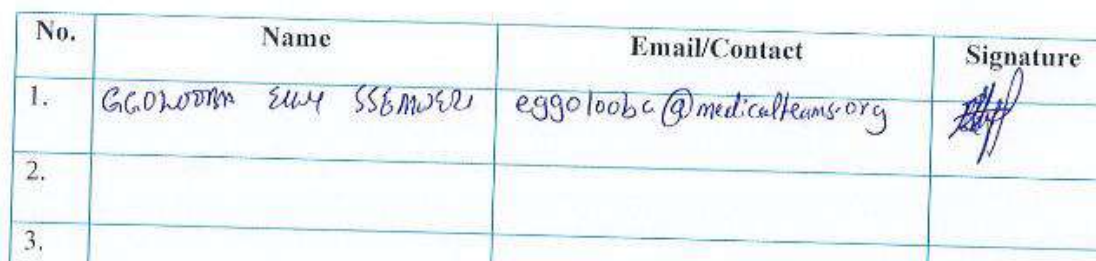 No. Name Email/Contact Signature
1. GGOLOOBA ELLY SSEMWERI eggolooba@medicalteams.org
2.
3.